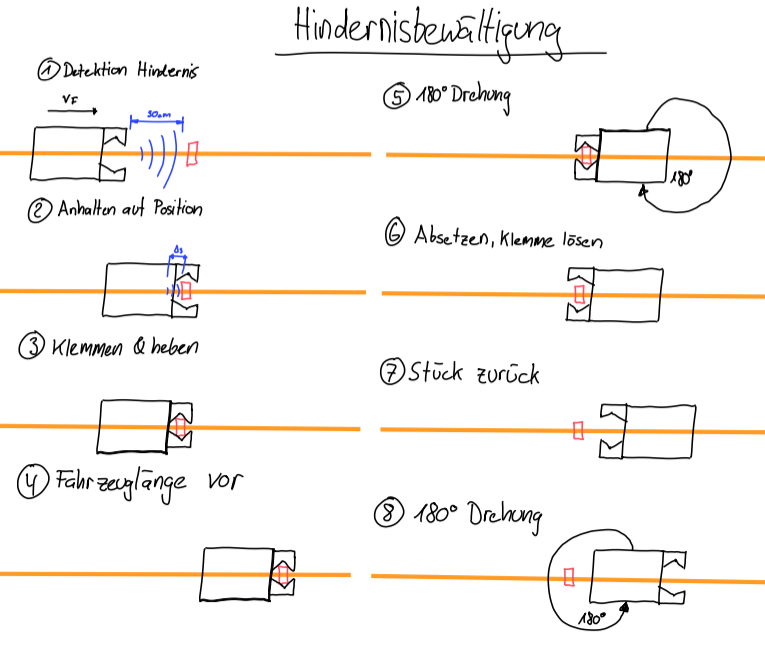 Hindernisbewältigung
① Detektion Hindernis
VF
50cm
② Anhalten auf Position
Δs
③ Klemmen & heben
④ Fahrzeuglänge vor
⑤ 180° Drehung
180°
⑥ Absetzen, Klemme lösen
⑦ Stück zurück
⑧ 180° Drehung
180°